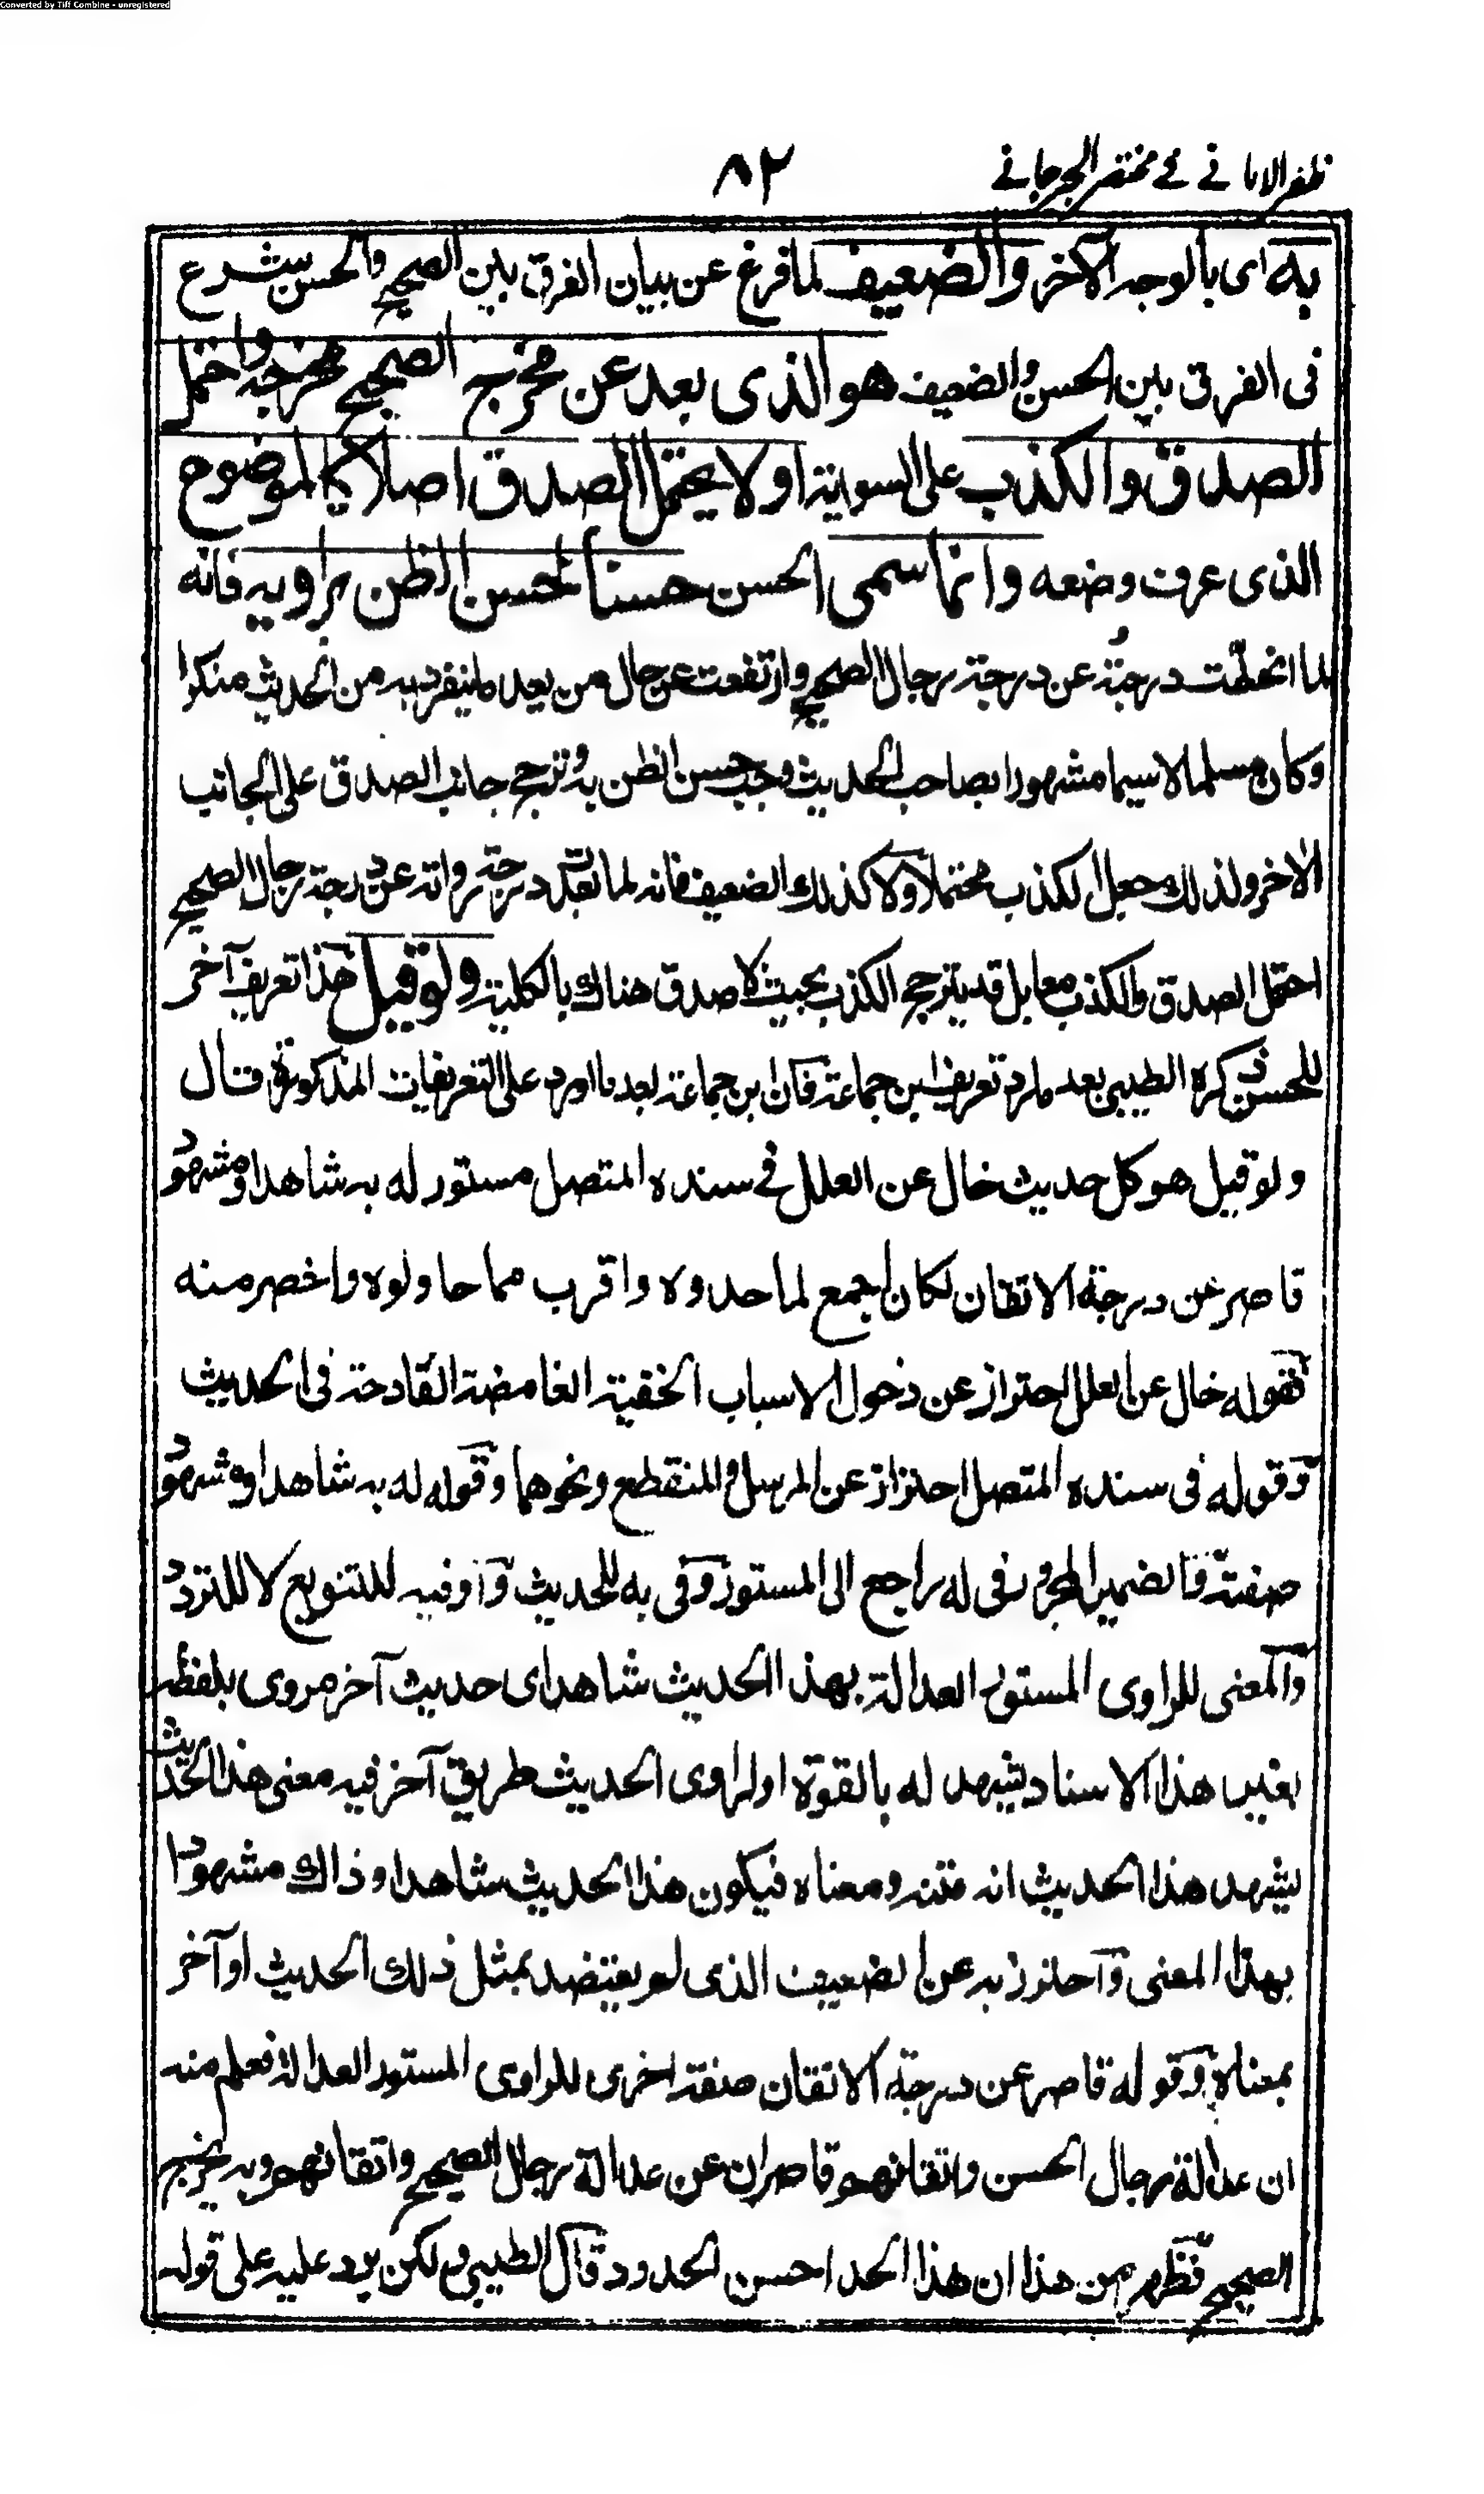 Converted by Tiff Combine - unregistered
ظفر الامانے فے مختصر الجرجانے
٨٢
به اى بالوجه الآخر والضعيف لما فرغ عن بيان الفرق بين الصحيح والحسن شرع
فى الفرق بين الحسن والضعيف هو الذى بعد عن مخرج الصحيح مخرجه واحتمل
الصدق والكذب على السوية او لا يحتمل الصدق اصلا كالموضوع
الذى عرف وضعه وانما سمى الحسن حسنا لحسن الظن براويه فانه
لما انحطت درجته عن درجة رجال الصحيح وارتفعت عن حال من يعد ما ينفرد به من الحديث منكرا
وكان مسلما لاسيما مشهورا بصاحب الحديث وجب حسن الظن به وترجح جانب الصدق على الجانب
الآخر ولذلك جعل الكذب محتملا ولا كذلك الضعيف فانه لما تعبد درجة رواته عن درجة رجال الصحيح
احتمل الصدق والكذب معا بل قد يترجح الكذب بحيث لا صدق هناك بالكلية ولو قيل هذا تعريف آخر
للحسن ذكره الطيبى بعد ما رد تعريف ابن جماعة فكان ابن جماعة بعد ما اورد على التعريفات المذكورة قال
ولو قيل هو كل حديث خال عن العلل فے سنده المتصل مستور له به شاهد او مشهود
قاصر عن درجة الاتقان لكان اجمع لما حدوه واقرب مما حاولوه واخصر منه
فقوله خال عن العلل احتراز عن دخول الاسباب الخفية الغامضة القادحة فى الحديث
وقوله فى سنده المتصل احتراز عن المرسل والمنقطع ونحوهما وقوله له به شاهد او مشهود
صفته فالضمير المجرور فى له راجع الى المستور وفى به للحديث وآو فيه للتنويع لا للتردد
والمعنى للراوى المستور العدالة بهذا الحديث شاهد اى حديث آخر مروى بلفظه
بغير هذا الاسناد يشهد له بالقوة او لراوى الحديث طريق آخر فيه معنى هذا الحديث
يشهد هذا الحديث انه متنه ومعناه فيكون هذا الحديث شاهدا وذالك مشهودا
بهذا المعنى وآحترز به عن الضعيف الذى لم يعتضد بمثل ذلك الحديث او آخر
بمعناه وقوله قاصر عن درجة الاتقان صفة اخرى للراوى المستور العدالة فعلم منه
ان عدالة رجال الحسن واتقانهم قاصران عن عدالة رجال الصحيح واتقانهم وبه يخرج
الصحيح فظهر من هذا ان هذا الحد احسن الحدود قال الطيبى ولكن يرد عليه على قوله